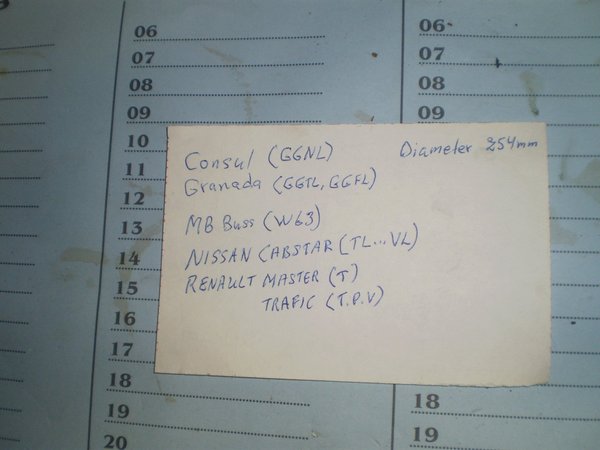 06 06
07 07
08 08
09 09
10
Consul (GGNL) Diameter 254mm
11
Granada (GGTL, GGFL)
12
13 MB Buss (W63)
14 NISSAN CABSTAR (TL...VL)
15 RENAULT MASTER (T)
TRAFIC (T.P.V)
16
17
18 18
19 19
20